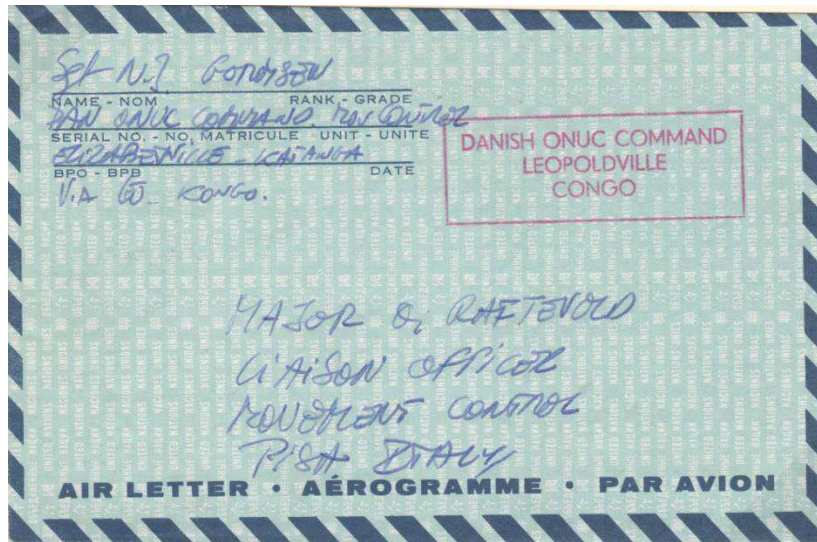 Sgt N.J.
NAME - NOM RANK - GRADE
DAN ONUC COMMAND
SERIAL NO. - NO, MATRICULE UNIT - UNITE
ELIZABETVILLE - KATANGA
BPO - BPB DATE
KONGO.
DANISH ONUC COMMAND
LEOPOLDVILLE
CONGO
MAJOR O, RAFTEVOLD
LIAISON OFFICER
MOVEMENT CONTROL
PISA ITALY
AIR LETTER • AÉROGRAMME • PAR AVION